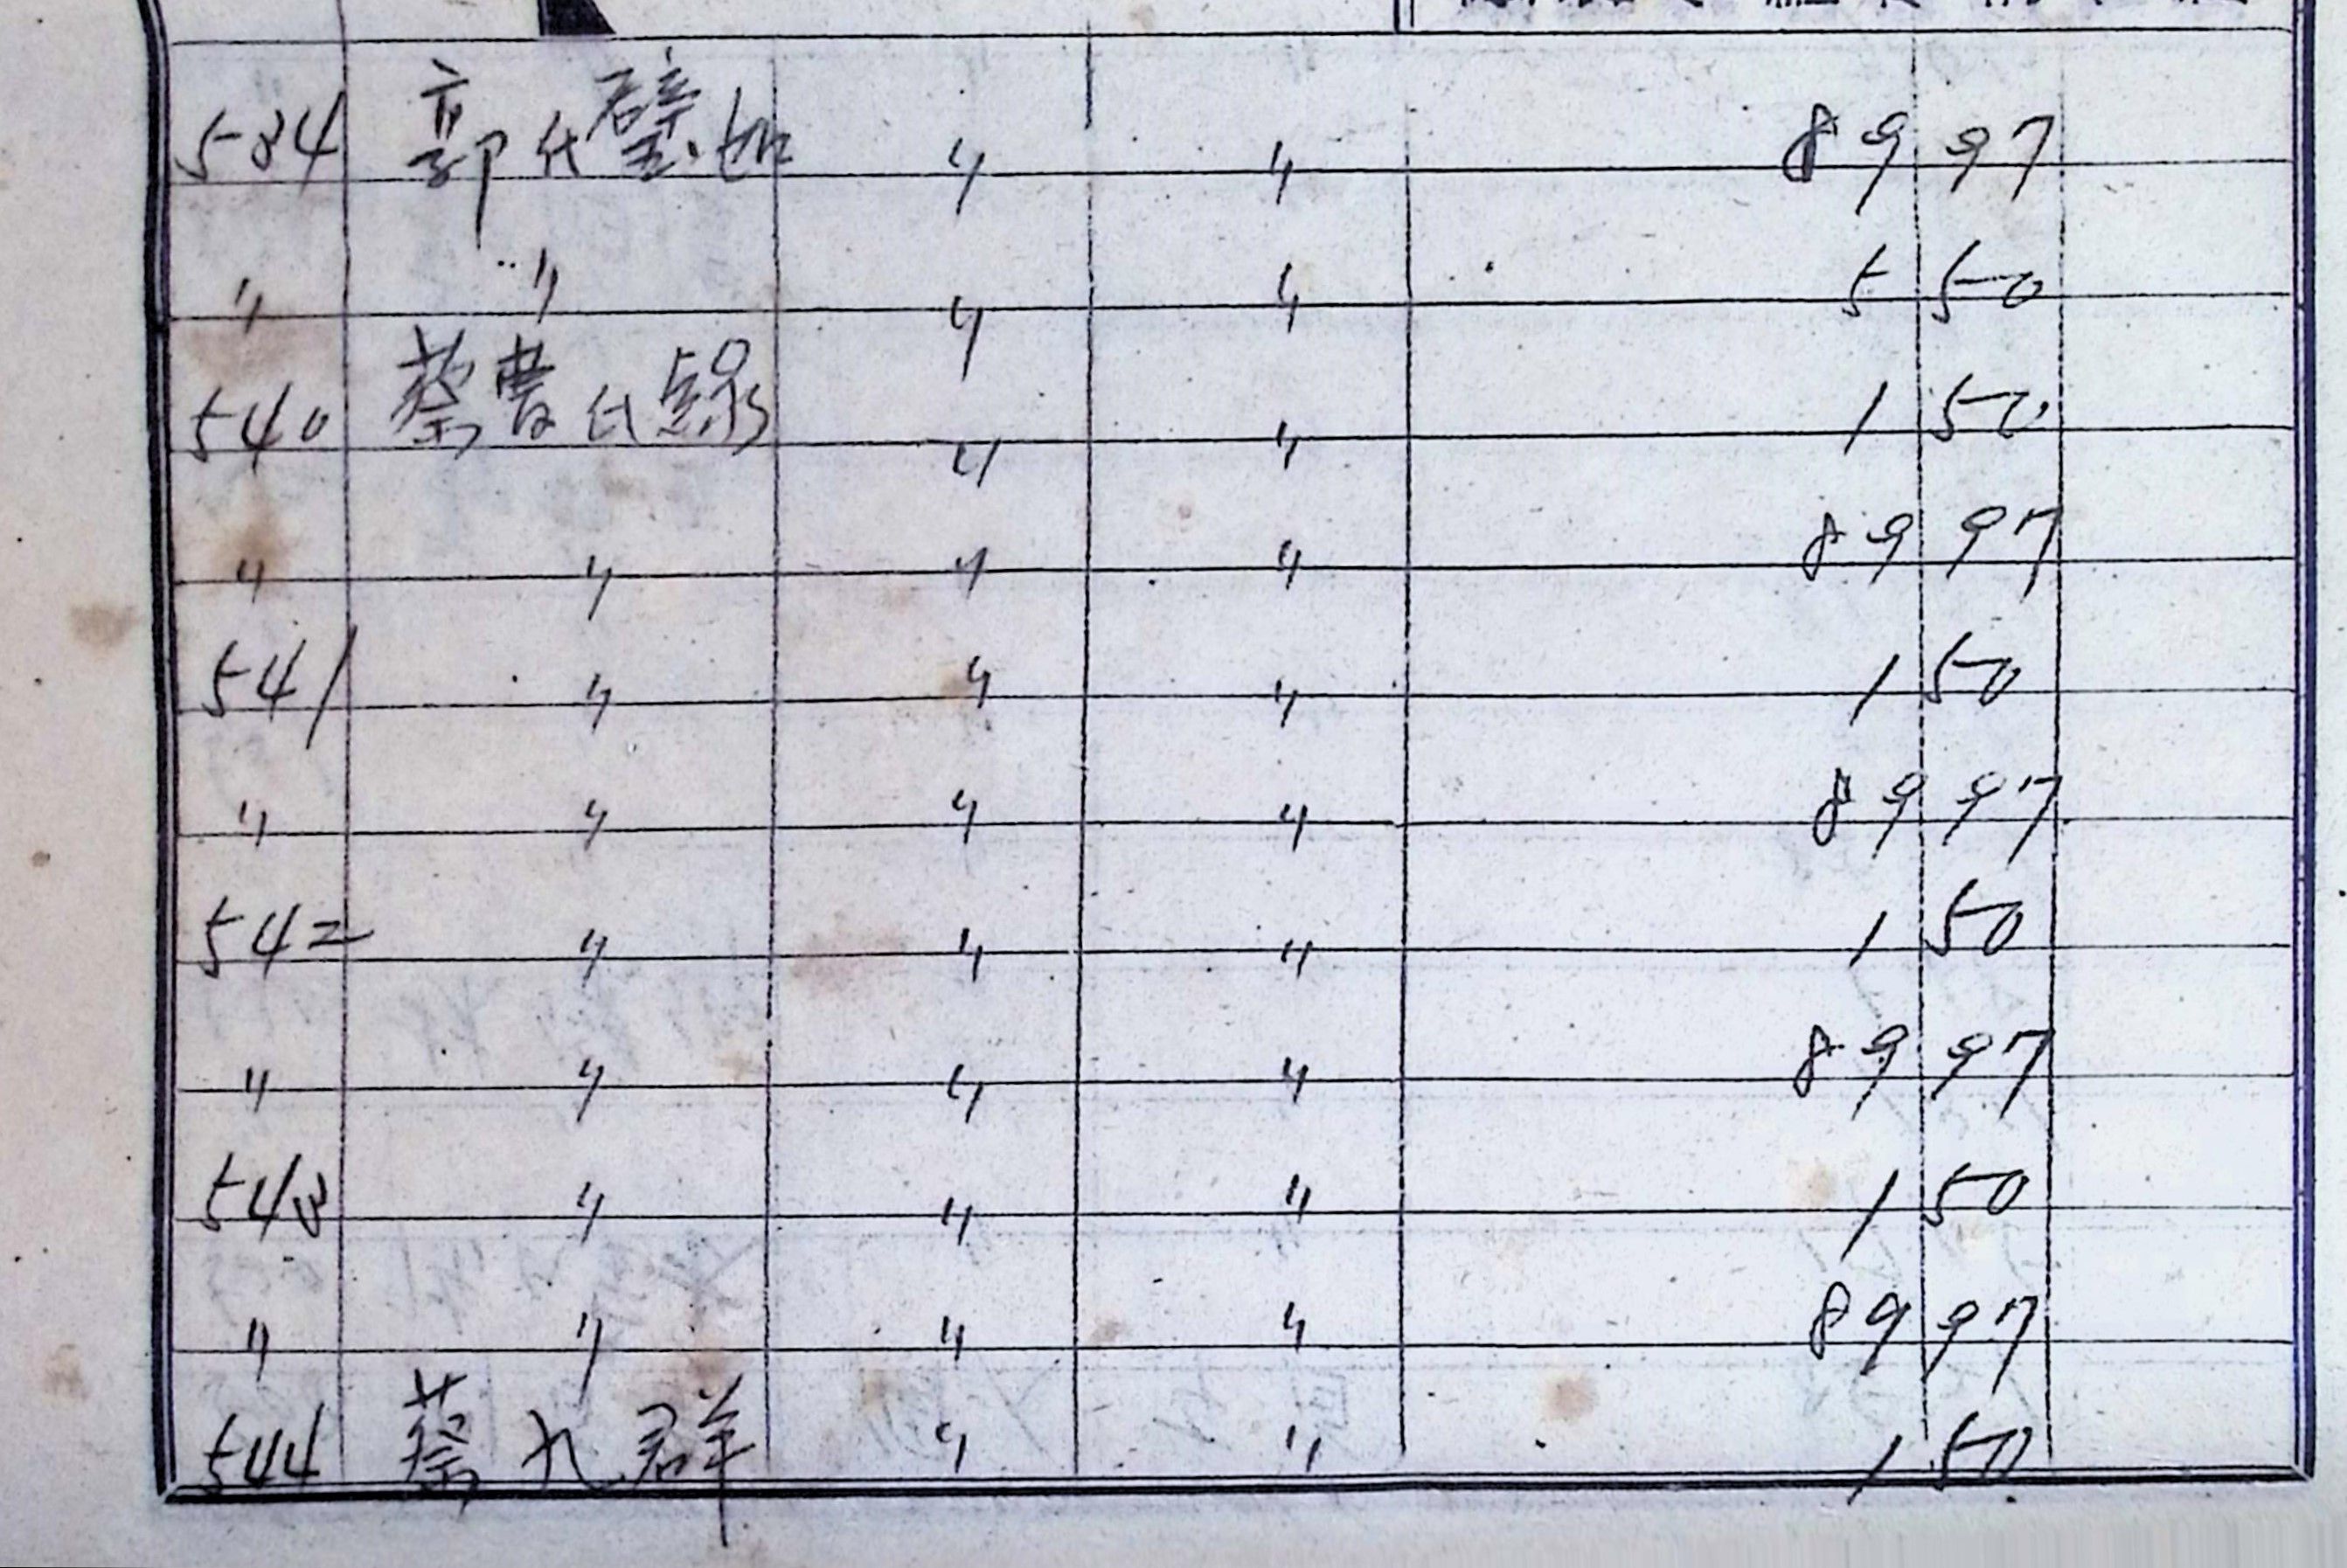 534 郭氏璧如 〃 〃 89 97
〃 〃 〃 〃 5 50
540 蔡曹氏綠 〃 〃 1 50
〃 〃 〃 〃 89 97
541 〃 〃 〃 1 50
〃 〃 〃 〃 89 97
542 〃 〃 〃 1 50
〃 〃 〃 〃 89 97
543 〃 〃 〃 1 50
〃 〃 〃 〃 89 97
544 蔡九群 〃 〃 1 50